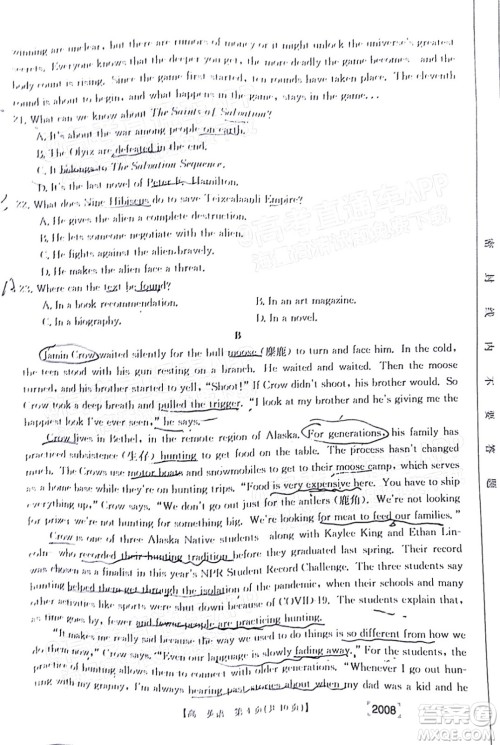 winning are unclear, but there are rumors of money or it might unlock the universe's greatest
secrets. Everyone knows that the deeper you get, the more deadly the game becomes and the
body count is rising. Since the game first started, ten rounds have taken place. The eleventh
round is about to begin, and what happens in the game, stays in the game...
21. What can we know about The Saints of Salvation?
A. It's about the war among people on earth.
B. The Olyix are defeated in the end.
C. It belongs to The Salvation Sequence.
D. It's the last novel of Peter F. Hamilton.
22. What does Nine Hibiscus do to save Teixcalaanli Empire?
A. He gives the alien a complete destruction.
B. He lets someone negotiate with the alien.
C. He fights against the alien bravely.
D. He makes the alien face a threat.
23. Where can the text be found?
A. In a book recommendation.
B. In an art magazine.
C. In a biography.
D. In a novel.
B
Jamin Crow waited silently for the bull moose (麋鹿) to turn and face him. In the cold,
the teen stood with his gun resting on a branch. He waited and waited. Then the moose
turned, and his brother started to yell, "Shoot!" If Crow didn't shoot, his brother would. So
Crow took a deep breath and pulled the trigger. "I look at my brother and he's giving me the
happiest look I've ever seen," he says.
Crow lives in Bethel, in the remote region of Alaska. For generations, his family has
practiced subsistence (生存) hunting to get food on the table. The process hasn't changed
much. The Crows use motor boats and snowmobiles to get to their moose camp, which serves
as a home base while they're on hunting trips. "Food is very expensive here. You have to ship
everything up," Crow says. "So when you're hunting you don't look for the antlers (鹿角)
for prizes we're not hunting for something big. We're looking for meat to feed our families."
Crow is one of three Alaska Native students along with Kaylee King and Ethan Lin-
coln who recorded their hunting tradition before they graduated last spring. Their record
was chosen as a finalist in this year's NPR Student Record Challenge. The three students say
hunting helped them get through the isolation of the pandemic, when their schools and many
other activities like sports were shut down because of COVID-19. The students explain that,
as time goes by, fewer and fewer people are practicing hunting.
"It makes me really sad because the way we used to do things is so different from how we
do it today," Crow says. "Even our language is slowly fading away." But, he explains, the
practice of hunting is a way to connect with older generations. "Whenever I go hunting
with my family, I'm always hearing past stories about what they did when my dad was a kid and he
【高 英语 第4页(共10页)】
2008
密封线内不要答题